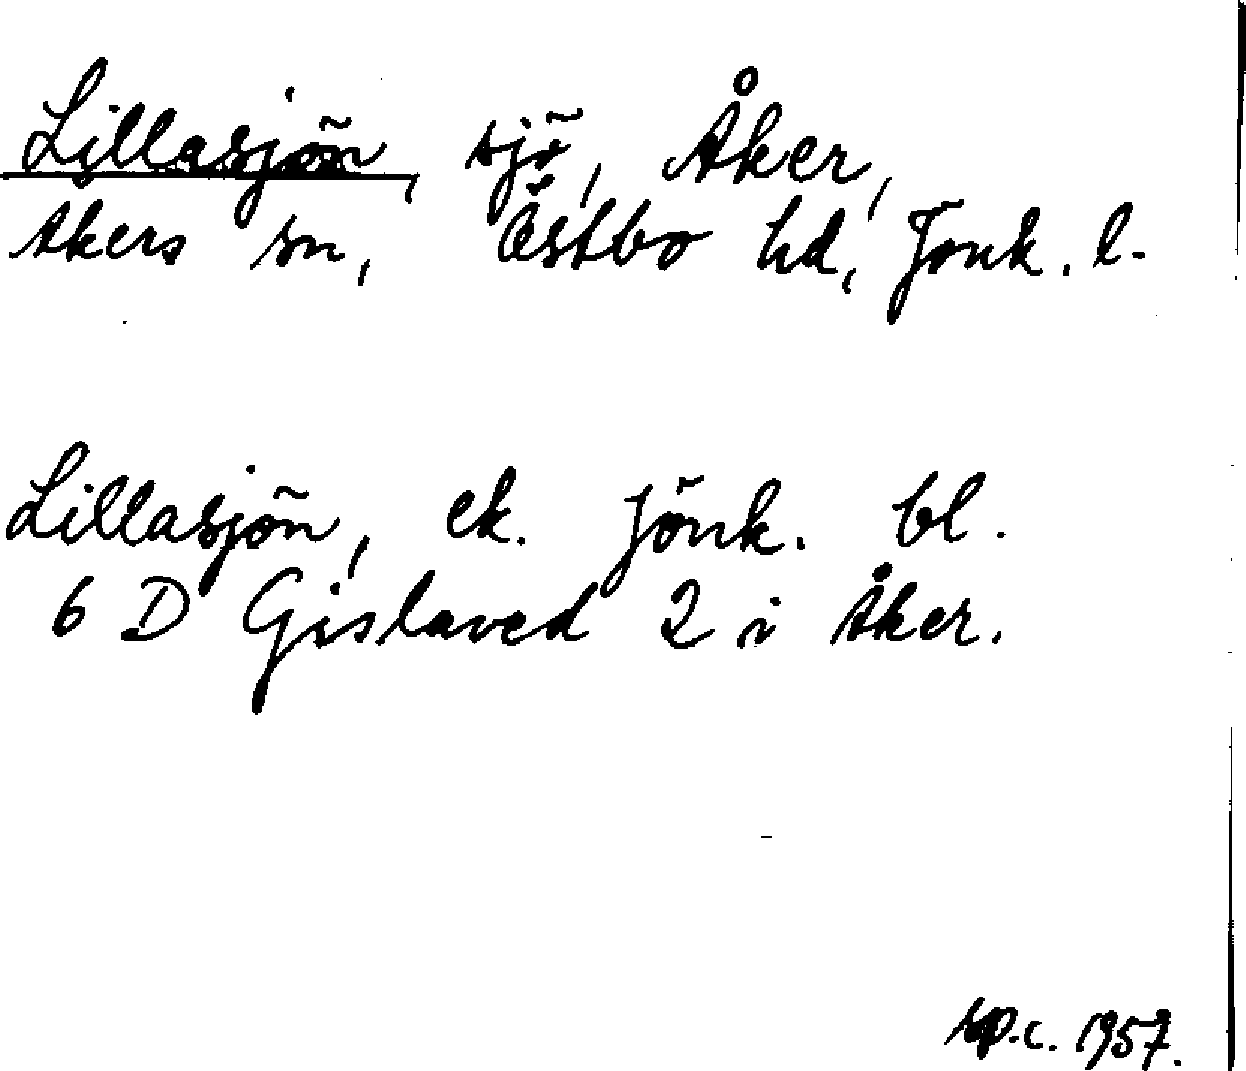 Lillasjön, sjö, Åker,
Åkers sn, Östbo hd, Jönk. l.
Lillasjön, ek. Jönk. bl.
6 D Gislaved 2 i Åker.
sp.c. 1957.